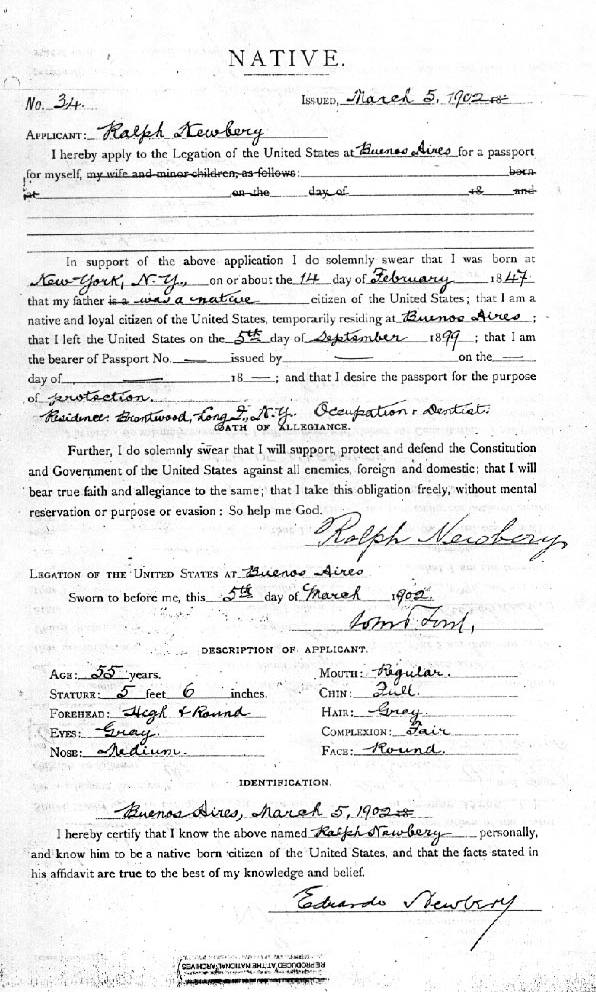 NATIVE.
No. 34. ISSUED, March 5, 1902 18
APPLICANT: Ralph Newbery
I hereby apply to the Legation of the United States at Buenos Aires for a passport
for myself, my wife and minor children, as follows: born
at on the day of 18 and
In support of the above application I do solemnly swear that I was born at
New York, N.Y., on or about the 14 day of February 1847
that my father is a was a native citizen of the United States; that I am a
native and loyal citizen of the United States, temporarily residing at Buenos Aires;
that I left the United States on the 5th day of September 1899; that I am
the bearer of Passport No. — issued by — on the —
day of — 18 —; and that I desire the passport for the purpose
of protection.
Residence: Brentwood, Long I., N.Y. Occupation: Dentist.
OATH OF ALLEGIANCE.
Further, I do solemnly swear that I will support, protect and defend the Constitution
and Government of the United States against all enemies, foreign and domestic; that I will
bear true faith and allegiance to the same; that I take this obligation freely, without mental
reservation or purpose or evasion: So help me God.
Ralph Newbery
LEGATION OF THE UNITED STATES AT Buenos Aires
Sworn to before me, this 5th day of March 1902.
DESCRIPTION OF APPLICANT.
AGE: 55 years. MOUTH: Regular.
STATURE: 5 feet 6 inches. CHIN: Full.
FOREHEAD: High & Round HAIR: Gray.
EYES: Gray. COMPLEXION: Fair
NOSE: Medium. FACE: Round.
IDENTIFICATION.
Buenos Aires, March 5, 1902 18
I hereby certify that I know the above named Ralph Newbery personally,
and know him to be a native born citizen of the United States, and that the facts stated in
his affidavit are true to the best of my knowledge and belief.
Eduardo Newbery
REPRODUCED AT THE NATIONAL ARCHIVES